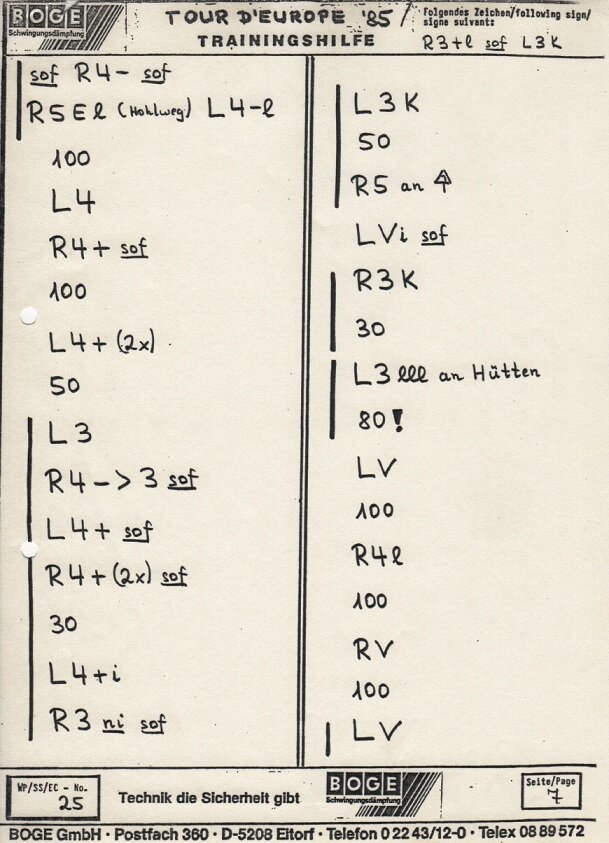 BOGE
Schwingungsdämpfung
TOUR D'EUROPE '85
TRAININGSHILFE
Folgendes Zeichen/following sign/
signe suivants
R3+l sof L3K
sof R4- sof
R5El (Hohlweg) L4-l
100
L4
R4+ sof
100
L4+ (2x)
50
L3
R4-> 3 sof
L4+ sof
R4+ (2x) sof
30
L4+i
R3 ni sof
L3K
50
R5 an
LVi sof
R3K
30
L3 lll an Hütten
80!
LV
100
R4l
100
RV
100
LV
WP/SS/EC - No.
25
Technik die Sicherheit gibt
BOGE
Schwingungsdämpfung
Seite/Page
7
BOGE GmbH · Postfach 360 · D-5208 Eitorf · Telefon 0 22 43/12-0 · Telex 08 89 572